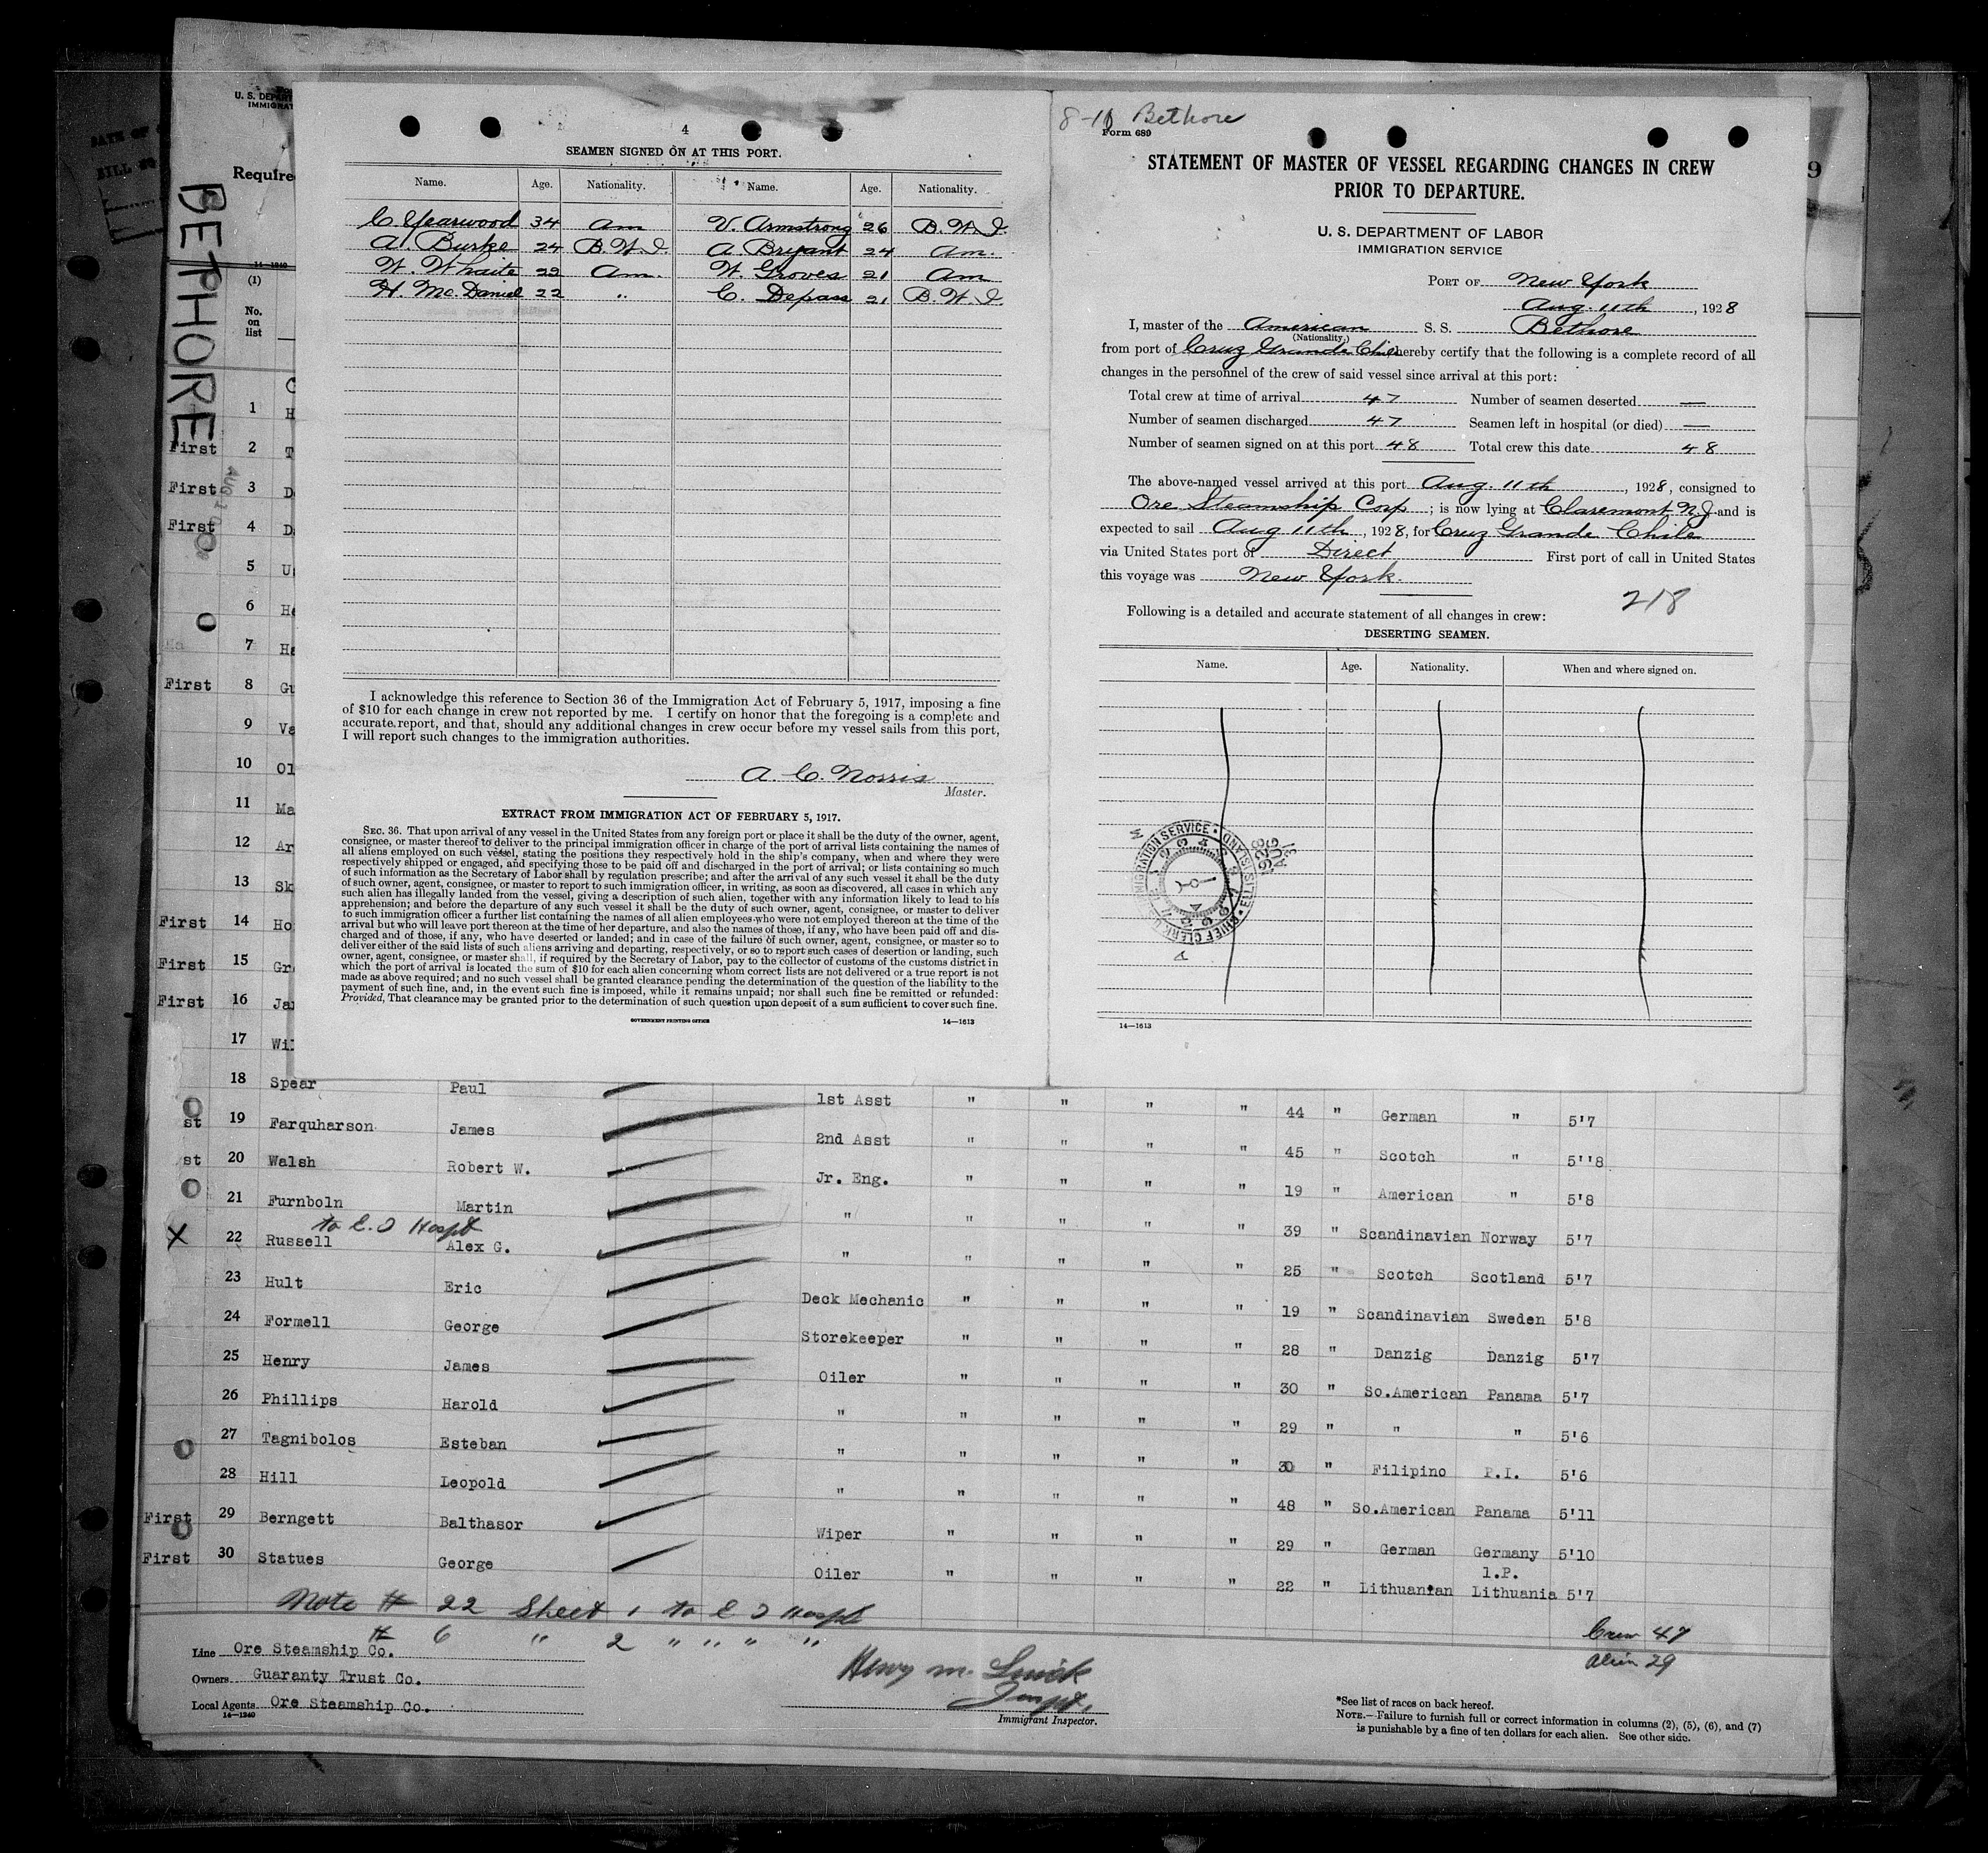 BETHORE
U. S. DEPART
IMMIGRAT
Require
14—1240
(1)
No.
on
list
4
SEAMEN SIGNED ON AT THIS PORT.
Name. Age. Nationality. Name. Age. Nationality.
C. Yearwood 34 Am V. Armstrong 26 B.W.I.
A. Burke 24 B.W.I. A. Bryant 24 Am.
W. Whaite 22 Am. W. Groves 21 Am
H. Mc. Daniel 22 " C. Depass 21 B.W.I.
I acknowledge this reference to Section 36 of the Immigration Act of February 5, 1917, imposing a fine
of $10 for each change in crew not reported by me. I certify on honor that the foregoing is a complete and
accurate report, and that, should any additional changes in crew occur before my vessel sails from this port,
I will report such changes to the immigration authorities.
A. C. Norris
Master.
EXTRACT FROM IMMIGRATION ACT OF FEBRUARY 5, 1917.
SEC. 36. That upon arrival of any vessel in the United States from any foreign port or place it shall be the duty of the owner, agent,
consignee, or master thereof to deliver to the principal immigration officer in charge of the port of arrival lists containing the names of
all aliens employed on such vessel, stating the positions they respectively hold in the ship's company, when and where they were
respectively shipped or engaged, and specifying those to be paid off and discharged in the port of arrival; or lists containing so much
of such information as the Secretary of Labor shall by regulation prescribe; and after the arrival of any such vessel it shall be the duty
of such owner, agent, consignee, or master to report to such immigration officer, in writing, as soon as discovered, all cases in which any
such alien has illegally landed from the vessel, giving a description of such alien, together with any information likely to lead to his
apprehension; and before the departure of any such vessel it shall be the duty of such owner, agent, consignee, or master to deliver
to such immigration officer a further list containing the names of all alien employees who were not employed thereon at the time of the
arrival but who will leave port thereon at the time of her departure, and also the names of those, if any, who have been paid off and dis-
charged and of those, if any, who have deserted or landed; and in case of the failure of such owner, agent, consignee, or master so to
deliver either of the said lists of such aliens arriving and departing, respectively, or so to report such cases of desertion or landing, such
owner, agent, consignee, or master shall, if required by the Secretary of Labor, pay to the collector of customs of the customs district in
which the port of arrival is located the sum of $10 for each alien concerning whom correct lists are not delivered or a true report is not
made as above required; and no such vessel shall be granted clearance pending the determination of the question of the liability to the
payment of such fine, and, in the event such fine is imposed, while it remains unpaid; nor shall such fine be remitted or refunded:
Provided, That clearance may be granted prior to the determination of such question upon deposit of a sum sufficient to cover such fine.
GOVERNMENT PRINTING OFFICE 14—1613
Bethore
Form 689
STATEMENT OF MASTER OF VESSEL REGARDING CHANGES IN CREW
PRIOR TO DEPARTURE.
U. S. DEPARTMENT OF LABOR
IMMIGRATION SERVICE
PORT OF New York
Aug. 11th, 1928
I, master of the American S. S. Bethore
(Nationality.)
from port of Cruz Grande Chile hereby certify that the following is a complete record of all
changes in the personnel of the crew of said vessel since arrival at this port:
Total crew at time of arrival 47 Number of seamen deserted —
Number of seamen discharged 47 Seamen left in hospital (or died) —
Number of seamen signed on at this port 48 Total crew this date 48
The above-named vessel arrived at this port Aug. 11th, 1928, consigned to
Ore Steamship Corp; is now lying at Claremont N.J. and is
expected to sail Aug 11th, 1928, for Cruz Grande Chile
via United States port of Direct First port of call in United States
this voyage was New York.
218
Following is a detailed and accurate statement of all changes in crew:
DESERTING SEAMEN.
Name. Age. Nationality. When and where signed on.
14—1613
9
1 H
First 2 T
First 3 D
First 4 D
5 U
6 He
7 Ha
First 8 Gu
9 Va
10 Ol
11 Ma
12 Ar
13 Sk
First 14 Ho
First 15 Gr
First 16 Ja
17 Wil
18 Spear Paul 1st Asst " " " " 44 " German " 5'7
st 19 Farquharson James 2nd Asst " " " " 45 " Scotch " 5''8
st 20 Walsh Robert W. Jr. Eng. " " " " 19 " American " 5'8
21 Furnboln Martin " " " " " 39 " Scandinavian Norway 5'7
to E. I Hospt
X 22 Russell Alex G. " " " " " 25 " Scotch Scotland 5'7
23 Hult Eric Deck Mechanic " " " " 19 " Scandinavian Sweden 5'8
24 Formell George Storekeeper " " " " 28 " Danzig Danzig 5'7
25 Henry James Oiler " " " " 30 " So.American Panama 5'7
26 Phillips Harold " " " " " 29 " " " 5'6
27 Tagnibolos Esteban " " " " " 30 " Filipino P.I. 5'6
28 Hill Leopold " " " " " 48 " So.American Panama 5'11
First 29 Berngett Balthasor Wiper " " " " 29 " German Germany 5'10
l.P.
First 30 Statues George Oiler " " " " 22 " Lithuanian Lithuania 5'7
Note # 22 Sheet 1 to E I Hospt
# 6 " 2 " " " "
Crew 47
alien 29
Line Ore Steamship Co.
Owners Guaranty Trust Co.
Local Agents Ore Steamship Co.
14—1240
Henry M.
Inspt.
Immigrant Inspector.
*See list of races on back hereof.
NOTE.—Failure to furnish full or correct information in columns (2), (5), (6), and (7)
is punishable by a fine of ten dollars for each alien. See other side.